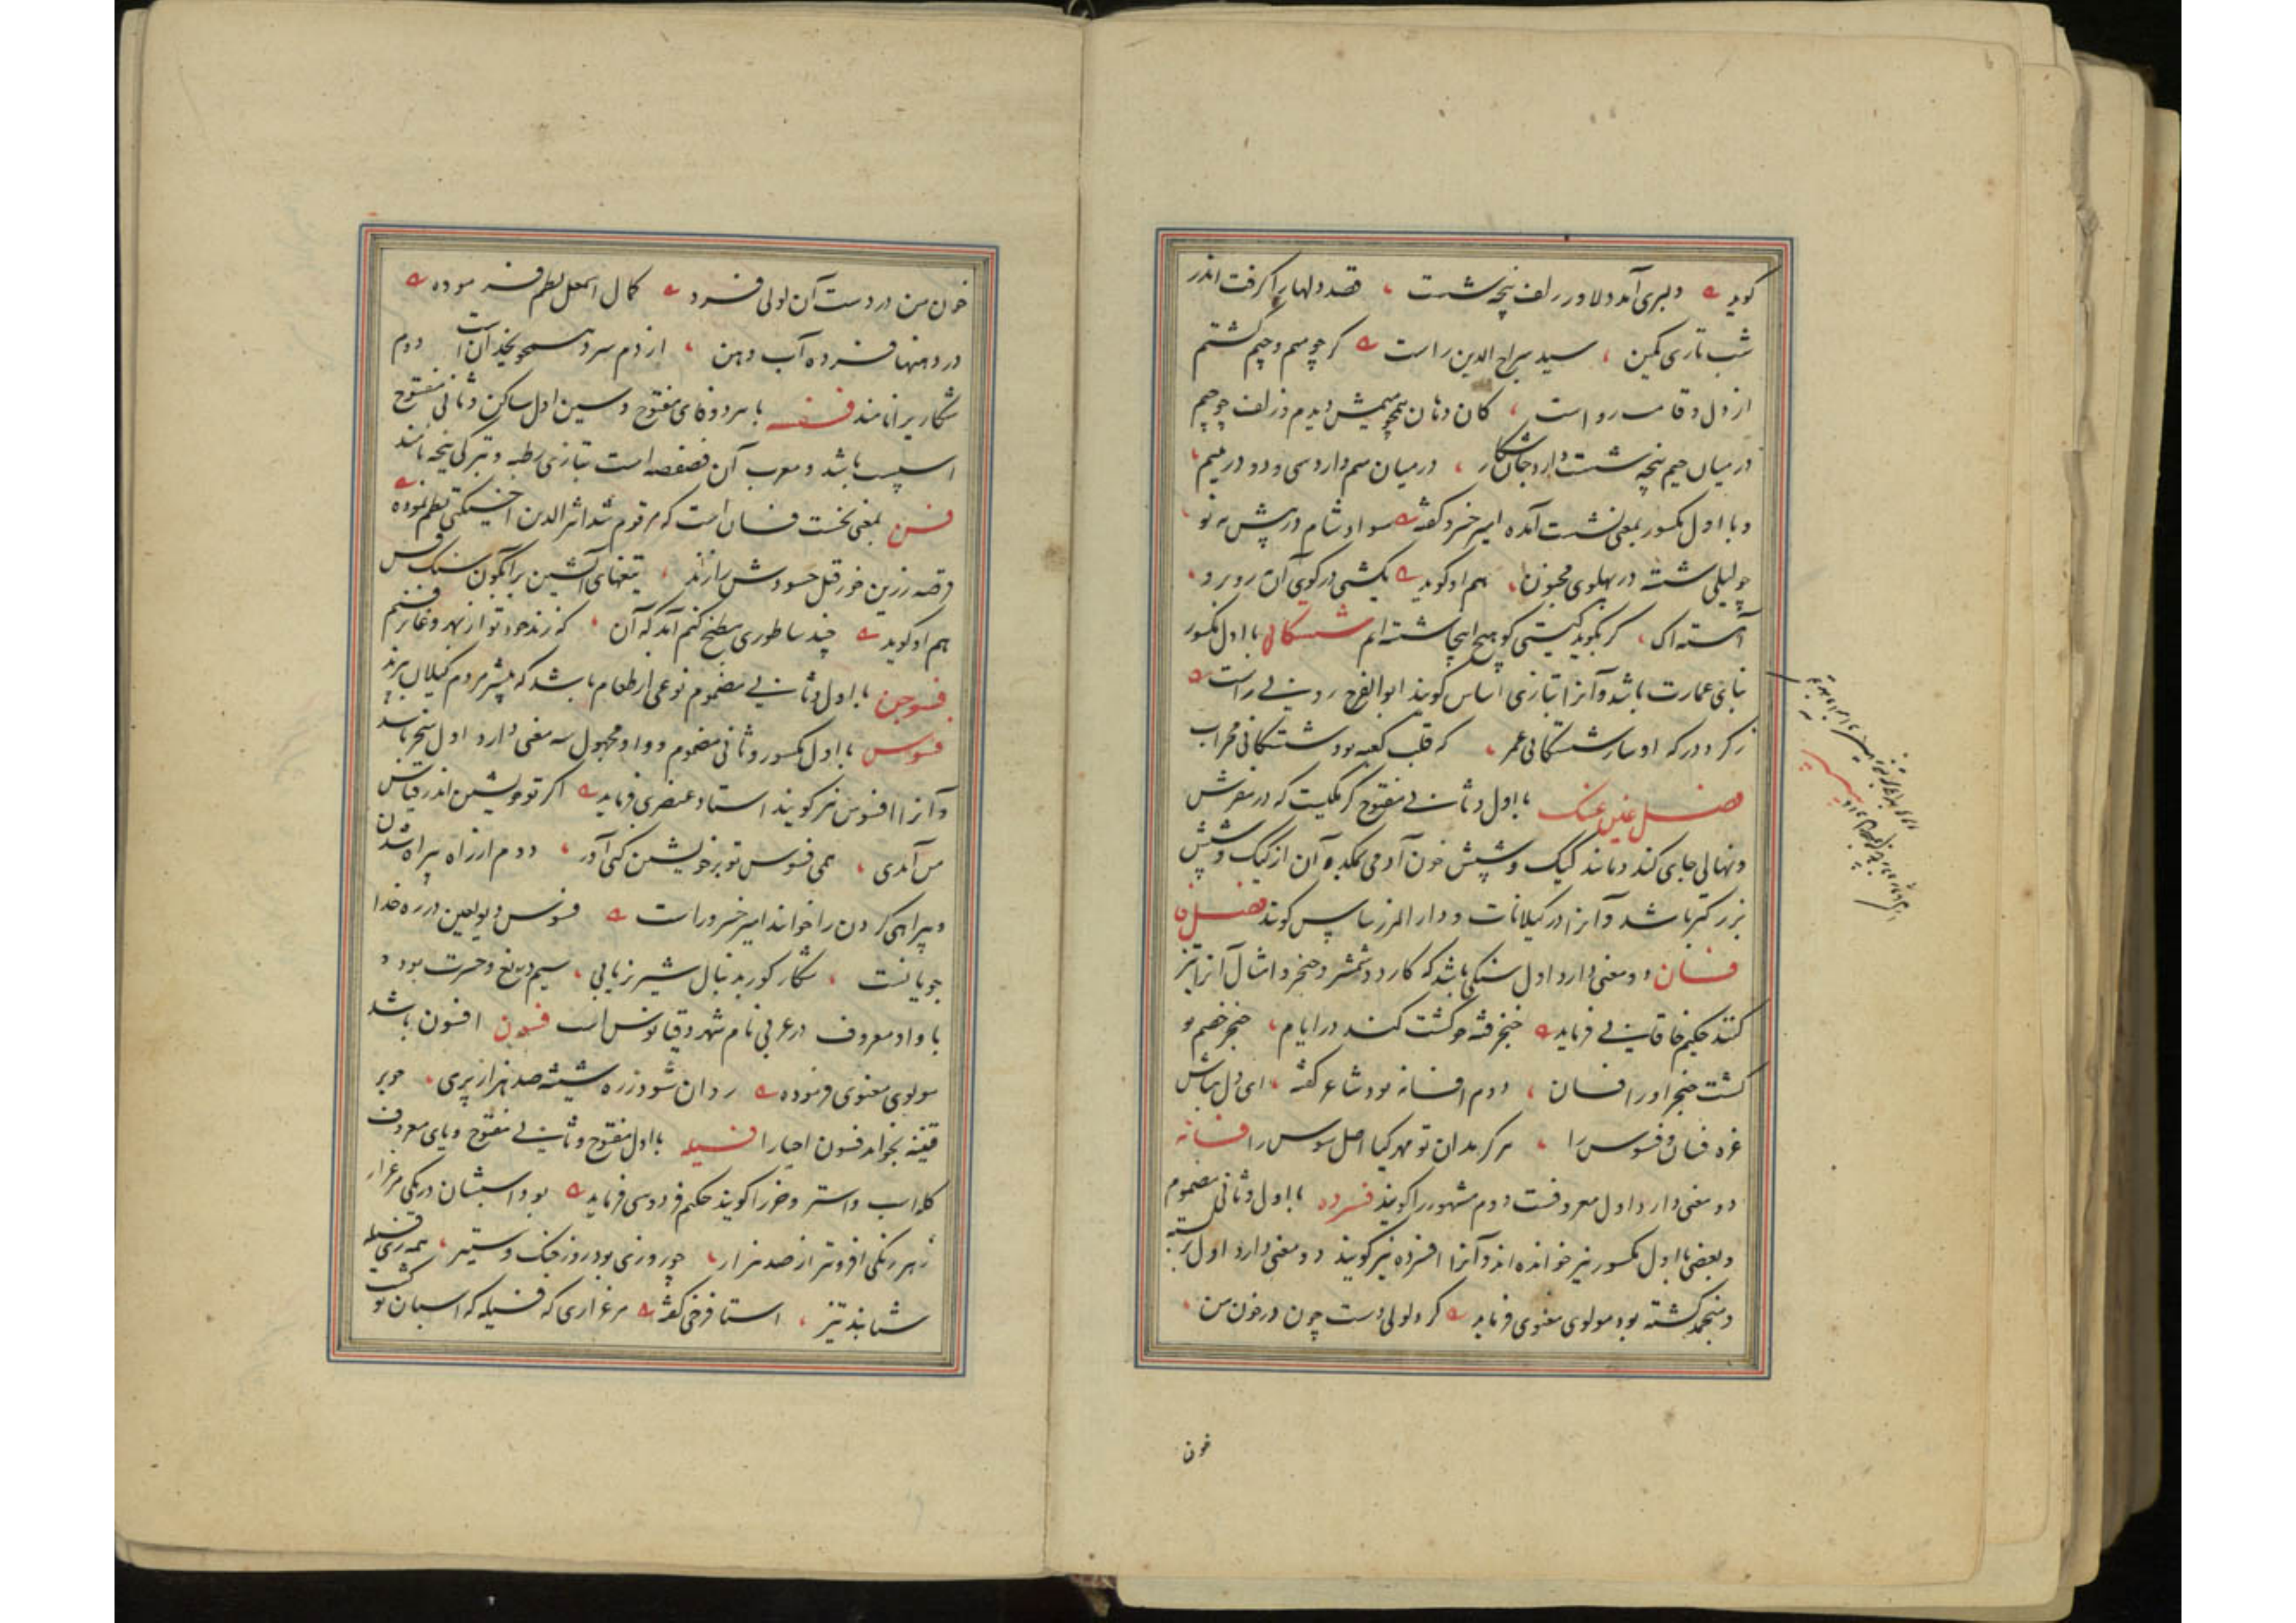 گوید دلبری آمد دلاور زلف پنجه شست قصد دلها را گرفت اندر
شب تاری کمین سید سراج الدین راست گر چو میم و جیم گشتم
از دل و قامت رواست کان دهان همچو میمش دیدم و زلف چو جیم
در میان جیم پنجه شست دارد جان شکار در میان میم دارد سی و دو در یتیم
و با اول مکسور بمعنی نشست آمده امیر خسرو گفته سواد شام در پیش مه نو
چو لیلی شسته در پهلوی مجنون هم او گوید یکشبی در کوی آن روبرو
آهسته اک گر بگوید کیستی کو هیچ اینجا شسته ایم شستکان با اول مکسور
بنای عمارت باشد و آنرا بتازی اساس گویند ابوالفرج رونی راست
ز گرد درکه او سار شستکانی عمر که قلب کعبه بود شستکانی محراب
فصل غین غسک با اول و ثانی مفتوح کرمکیست که در مفرش
و نهالی جای کند و مانند کیک و شپش خون آدمی بمکد و آن از کیک و شپش
بزرگتر باشد و آنرا در گیلانات و دار المرز ساس گویند فصل فا
فسان دو معنی دارد اول سنگی باشد که کارد و شمشیر و خنجر و امثال آنرا تیز
کنند حکیم خاقانی فرماید خنجر فتنه چو گشت کند در ایام خنجر خصم تو
گشت خنجر او را فسان دوم افسانه بود شاعر گفته ای دل مباش
غره فسان و فسوس را هرگز مدان تو مهر گیا اصل سوس را فسانه
دو معنی دارد اول معروفست دوم مشهور را گویند فسرده با اول و ثانی مضموم
و بعضی با اول مکسور نیز خوانده اند و آنرا افسرده نیز گویند دو معنی دارد اول بسته
و منجمد گشته بود مولوی معنوی فرماید گر دلولی دست چون در خون من
خون
خون من در دست آن لولی فسرد کمال اسمعیل نظم فرموده
در دهنها فسرده آب دهن از دم سرد همچو یخدان است دوم
شکار برانامند فسفسه با هر دو فای مفتوح و سین اول ساکن و ثانی مفتوح
اسپست باشد و معرب آن فصفصه است بتازی رطبه و ترکی ینجه نامند
فسن بمعنی نخست فسان است که مرقوم شد اثیر الدین اخسیکتی نظم نموده
قرصه زرین خور قتل حسودش را زند تیغهای آتشین بر آبگون سنگ فسن
هم او گوید چند ساطوری مطبخ کنم آمد که آن که زند خود تو از بهر وغا بر فسنم
فسوجن با اول و ثانی مضموم نوعی از طعام باشد که بیشتر مردم گیلان پزند
فسوس با اول مکسور و ثانی مضموم و واو مجهول سه معنی دارد اول سخر باشد
و آنرا افسوس نیز گویند استاد عنصری فرماید اگر تو خویشتن اندر قیاس
من آمدی همی فسوس تو بر خویشتن کنی آور دوم از راه بیراه شدن
و بیراهی کردن را خوانند امیر خسرو راست فسوس دیو لعین در ره خدا
جویانست شکار گور بدنبال شیر زیابی سیم دریغ و حسرت بود و
با واو معروف در عربی نام شهر دقیانوس است فسون افسون باشد
مولوی معنوی فرموده روان شود ز ره شیشه صد هزار پری چو بر
قنینه بخواند فسون احیا را فسیله با اول مفتوح و ثانی مفتوح و یای معروف
گله اسب و استر و خر را گویند حکیم فردوسی فرماید بود اسبشان در یکی مرغزار
ز هر رنگی افزونتر از صد هزار چو روزی بود روز جنگ و ستیز همه زی فسیله
شتابند تیز استاد فرخی گفته مرغزاری که فسیله گه اسبان تو گشت